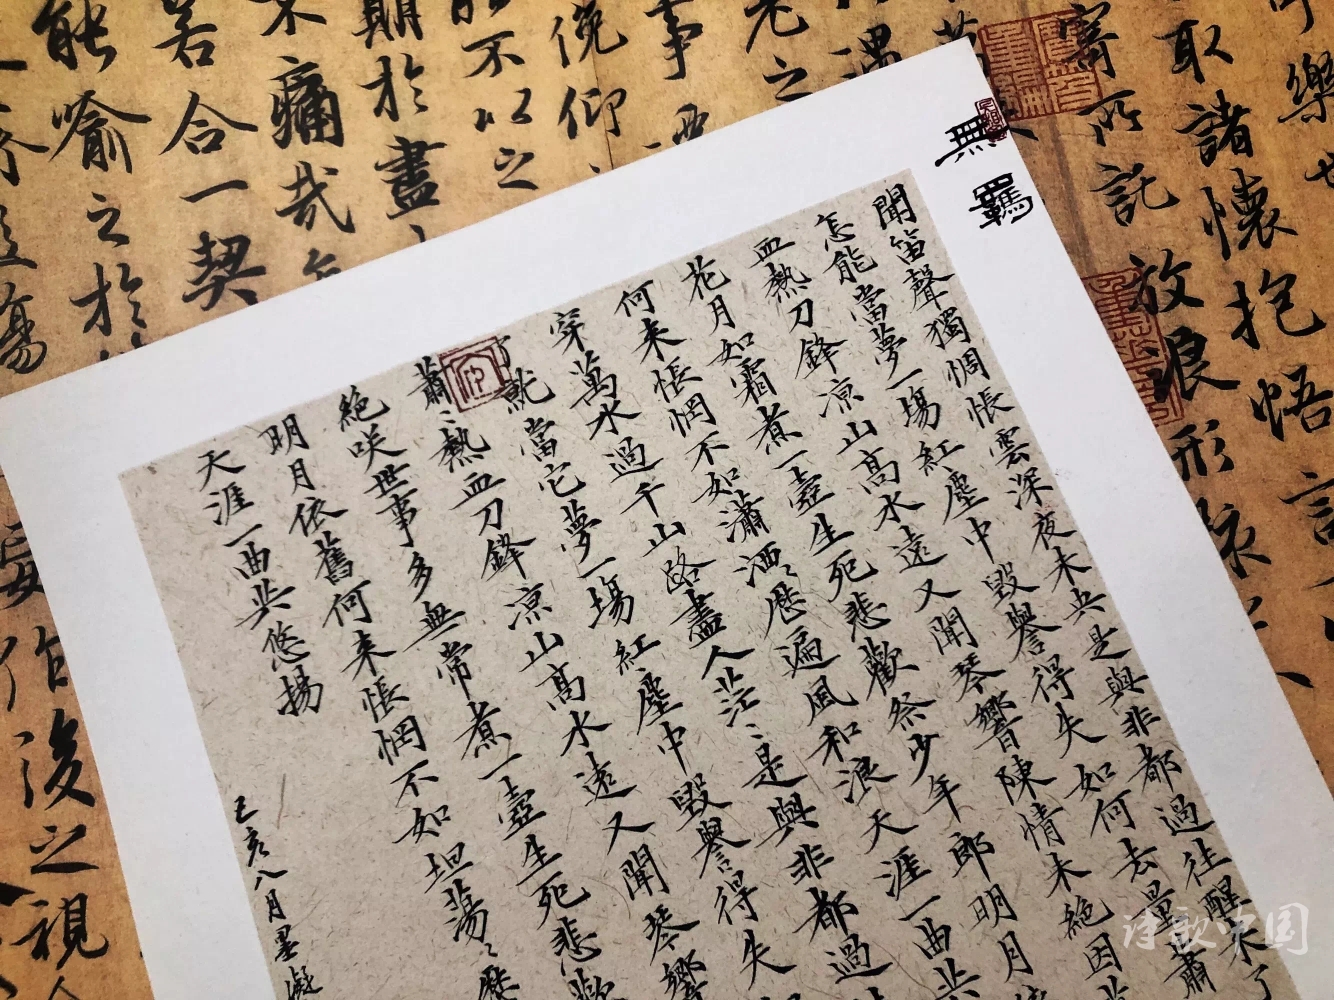 樂
取諸懷抱悟言
寄所託放浪形骸
老之
事
俛仰
不以之
期於盡
痛哉
若合一契
能喻之於
妄作後之視
無羈
聞笛聲獨惆悵雲深夜未央是與非都過往醒來了
怎能當夢一場紅塵中毀譽得失如何去量蕭
血熱刀鋒涼山高水遠又聞琴響陳情未絕因
花月如霜煮一壺生死悲歡祭少年郎明月依
何來悵惘不如瀟洒々歷遍風和浪天涯一曲共
穿萬水過千山路盡人茫々是與非都過
了就當它夢一場紅塵中毀譽得失
蕭々熱血刀鋒涼山高水遠又聞琴響
絕咲世事多無常煮一壺生死悲歡
明月依舊何來悵惘不如坦蕩々歷
天涯一曲共悠揚
己亥八月墨凝
诗歌中国